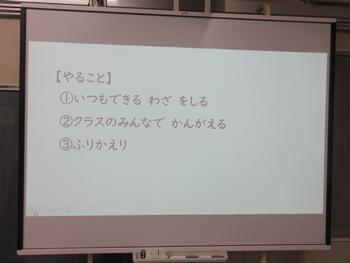 【やること】
①いつもできる わざ をしる
②クラスのみんなで かんがえる
③ふりかえり